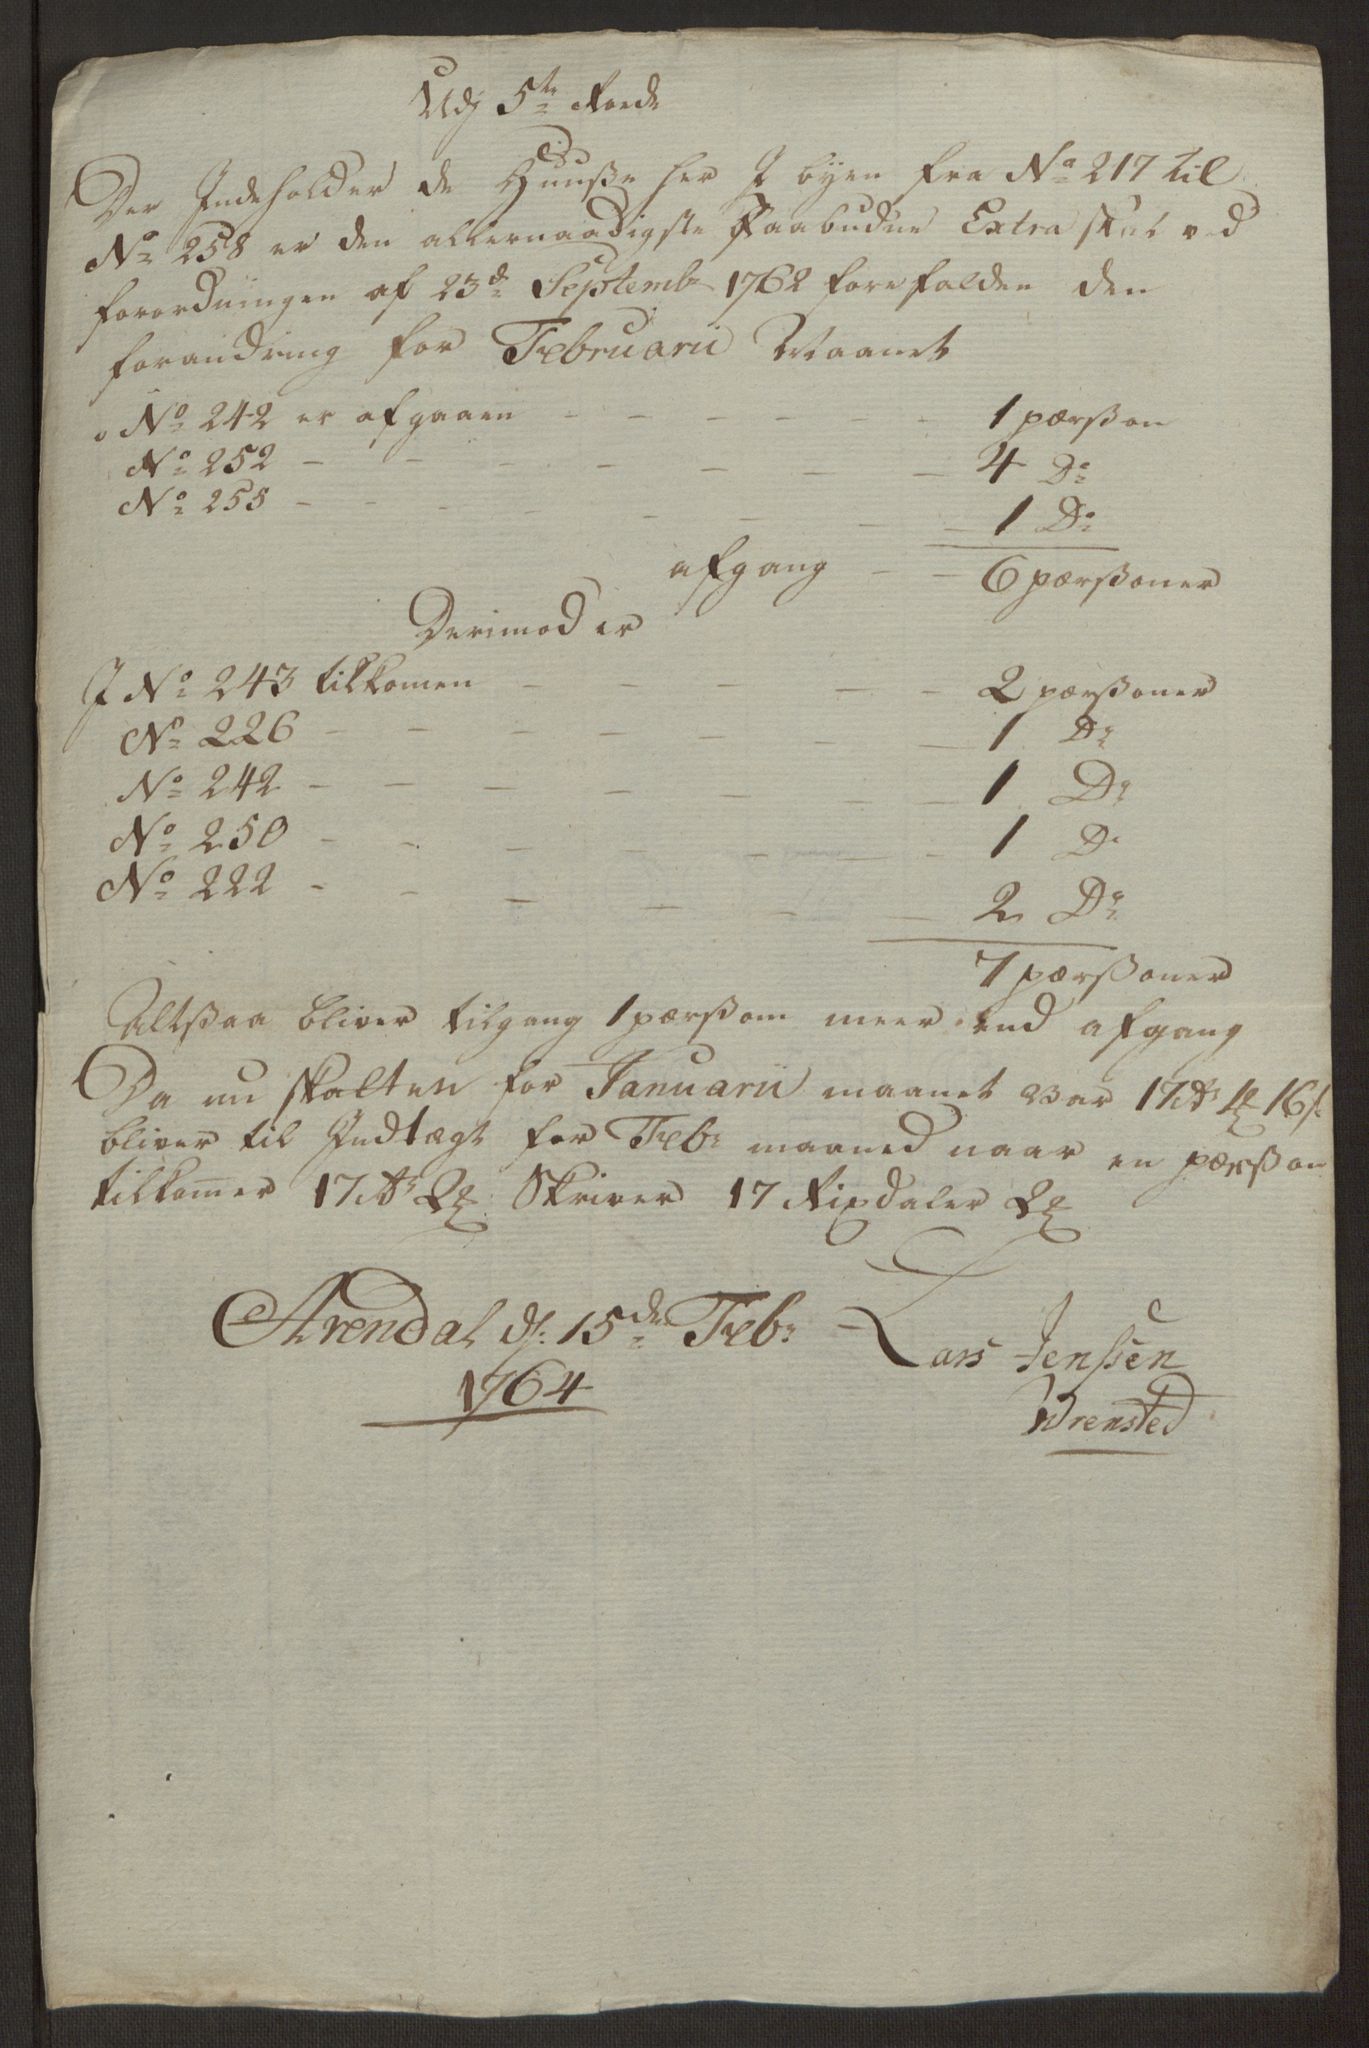 Udj 5te Rode
Der Indeholder de Huusse her I byen fra No 217 til
No 258 er den allernaadigste Paabudne Extra skat ved
forordningen af 23de Septembr 1762 forefalden den
forandring for Februarii Maanet
No 242 er afgaaen - - - - - 1 pærsson
No 252 - - - - - - - 4 Do
No 255 - - - - - - - 1 Do
afgang - - 6 pærssoner
Derimod er
I No 243 tilkomen - - - - - 2 pærssoner
No 226 - - - - - - - 1 Do
No 242 - - - - - - - 1 Do
No 250 - - - - - - - 1 Do
No 222 - - - - - - - 2 Do
7 pærssoner
Altssaa bliver tilgang 1 pærsson meer end afgang
Da nu skatten for Januarii maanet var 17 rdr 1 ℳ 16 s
bliver til Indtægt for Febr maaned naar en pærsson
tilkomer 17 rdr 2 ℳ Skriver 17 Rixdaler 2 ℳ
Arendal d: 15de Febr Lars Jenssen
1764 Wrensted